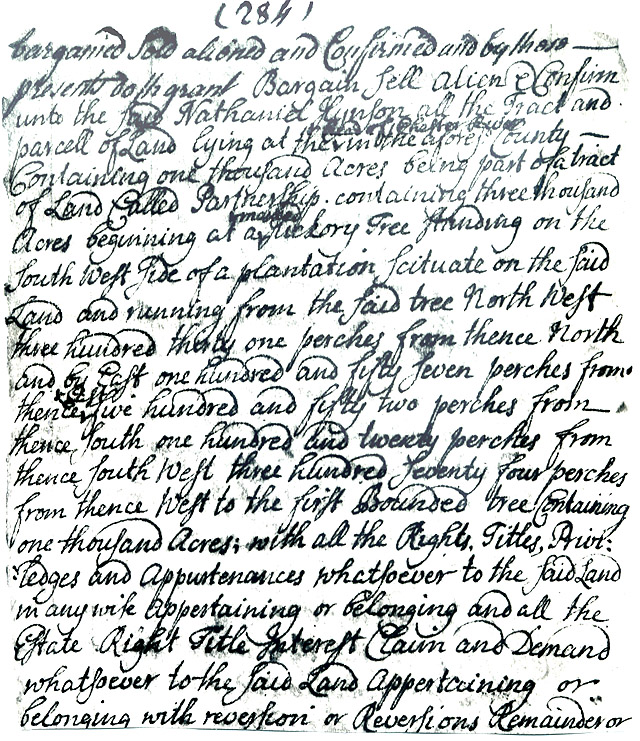 (284)
bargained Sold aliened and Confirmed and by these
presents doth grant Bargain Sell alien & Confirm
unto the said Nathaniel Hynson all the Tract and
parcell of Land lying at the head of Chester River in the aforesd County
Containing one thousand Acres being part of a tract
of Land Called Partnership containing three thousand
Acres beginning at a marked Hickory Tree standing on the
South West Side of a plantation scituate on the said
Land and running from the said tree North West
three hundred thirty one perches from thence North
and by East one hundred and fifty seven perches from
thence East five hundred and fifty two perches from
thence South one hundred and twenty perches from
thence South West three hundred Seventy four perches
from thence West to the first Bounded tree Containing
one thousand Acres; with all the Rights, Titles, Privi:
ledges and Appurtenances whatsoever to the said Land
in any wise Appertaining or belonging and all the
Estate Right Title Interest Claim and Demand
whatsoever to the said Land Appertaining or
belonging with reversion or Reversions Remainder or